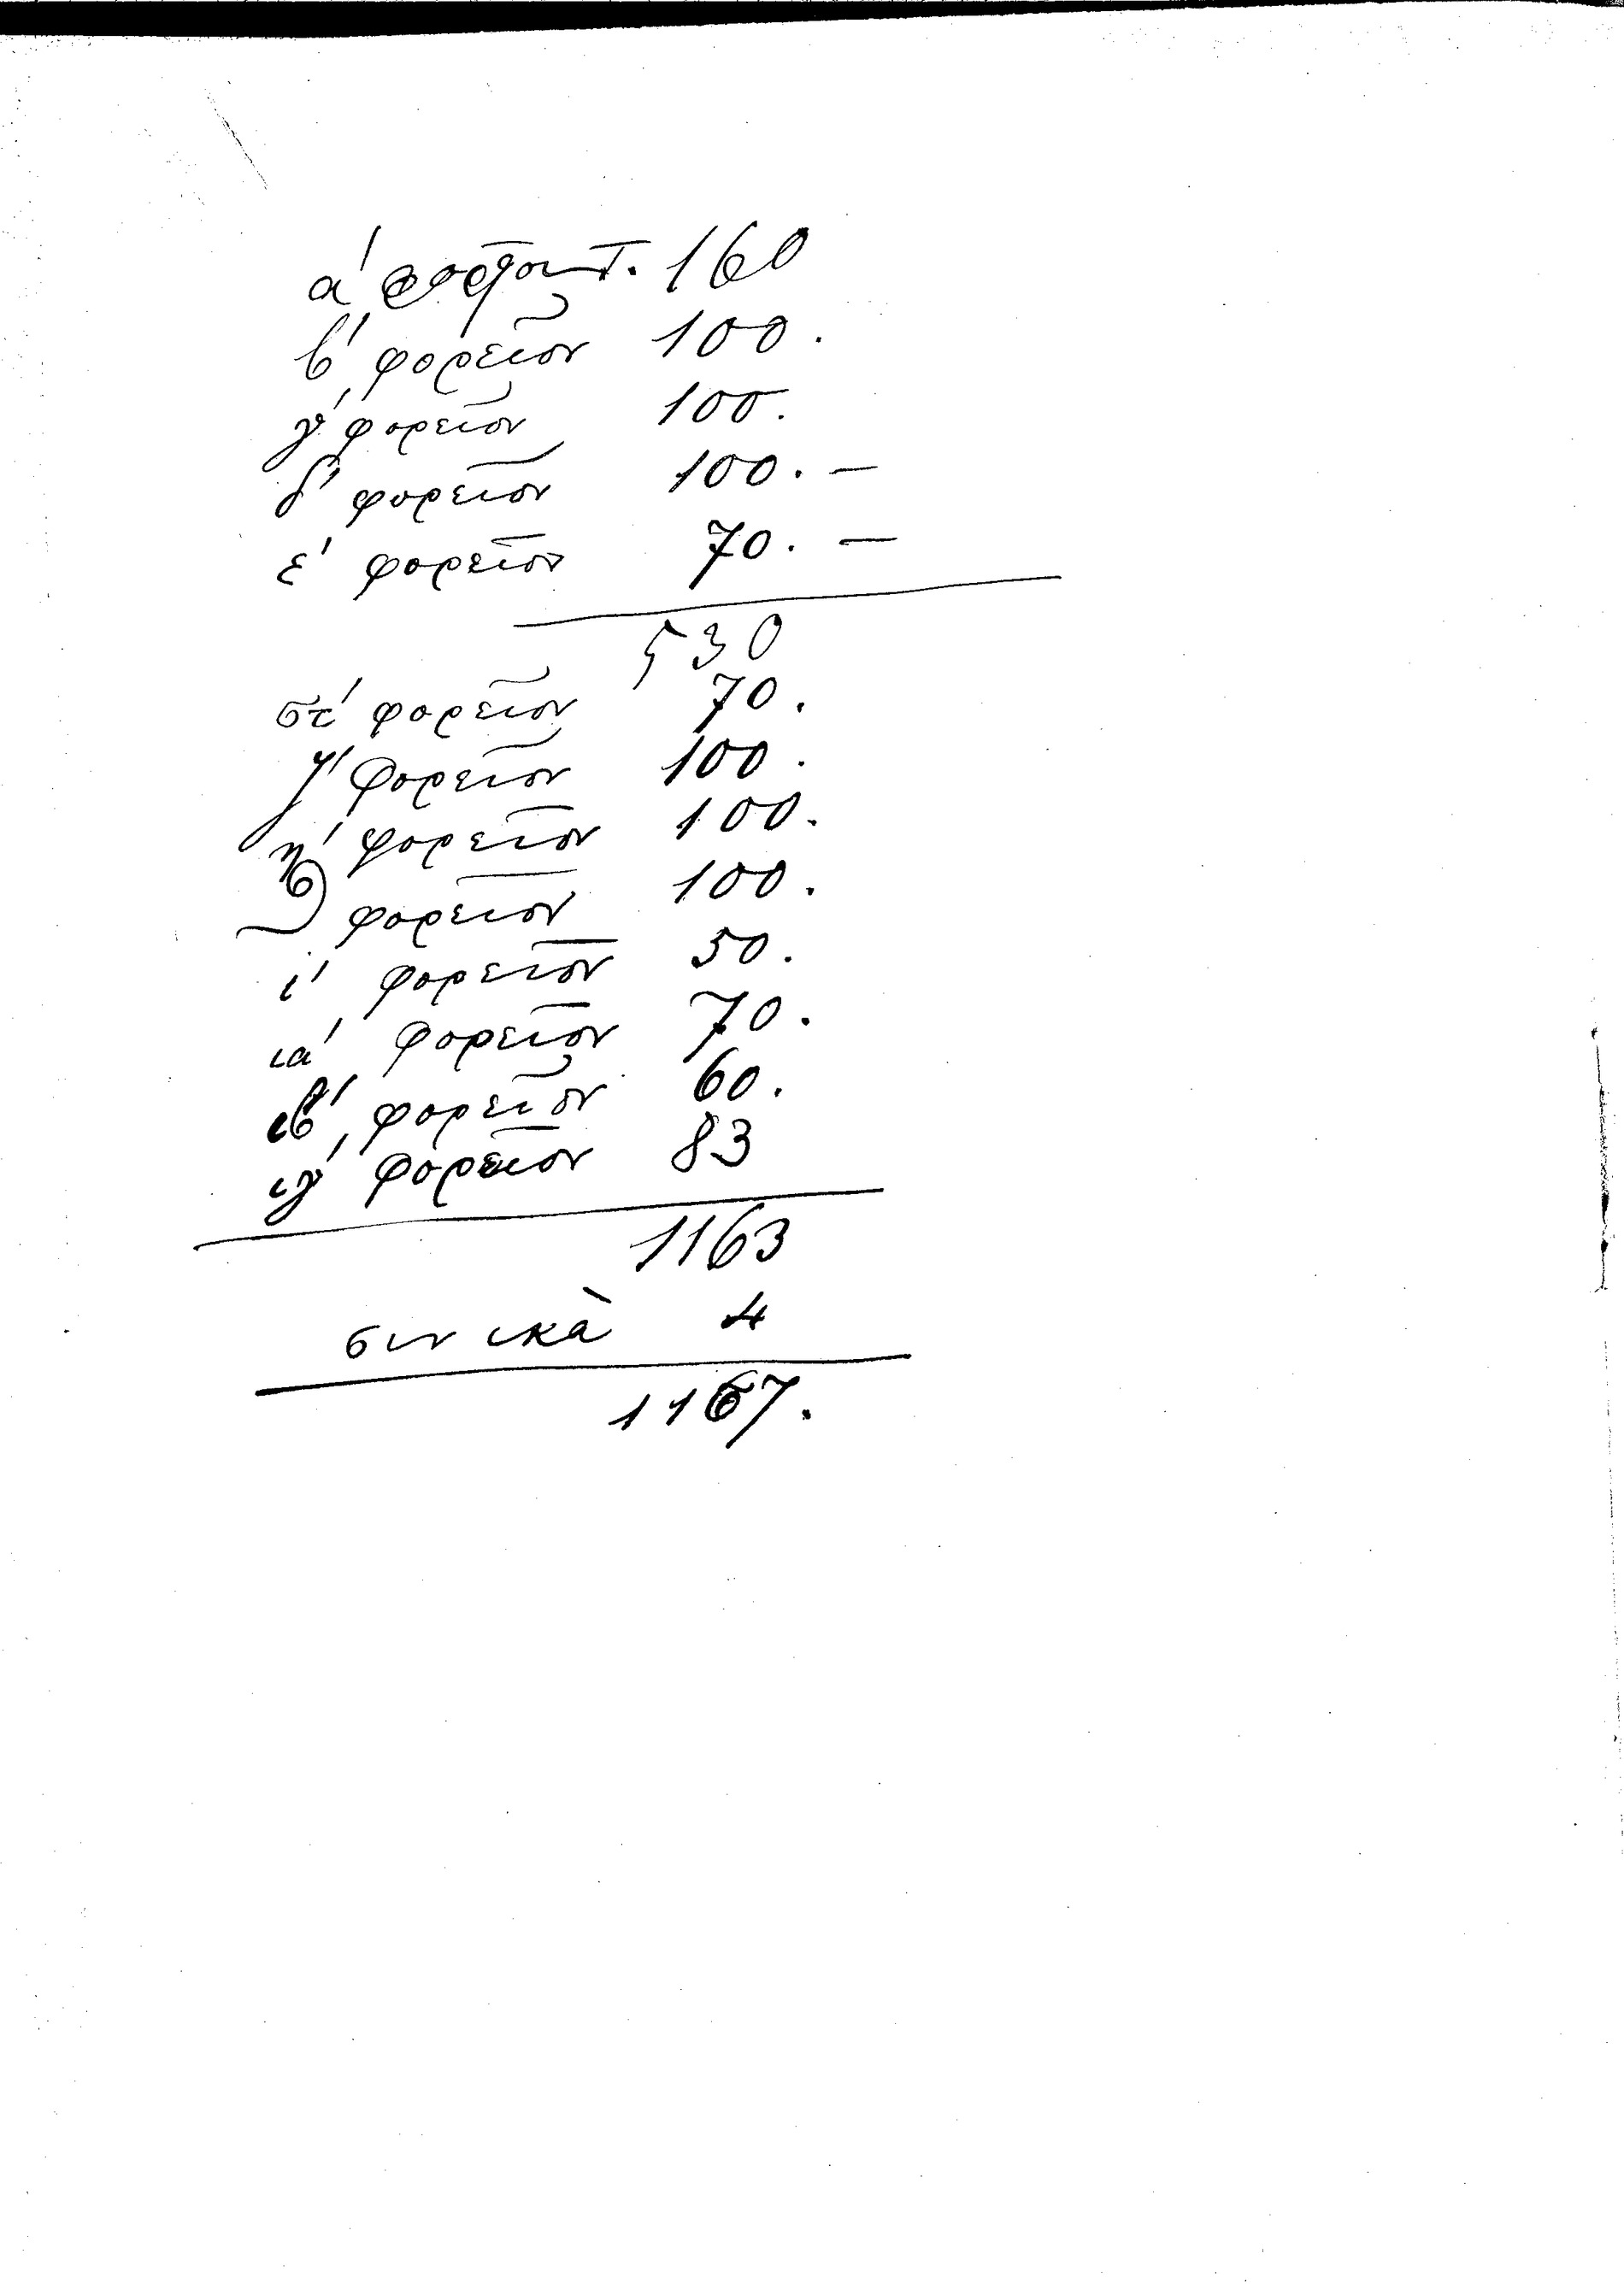 α' φορεῖον τ. 160
β' φορεῖον 100.
γ' φορεῖον 100.
δ' φορεῖον 100. —
ε' φορεῖον 70. —
530
στ' φορεῖον 70.
ζ' φορεῖον 100.
η' φορεῖον 100.
θ' φορεῖον 100.
ι' φορεῖον 50.
ια' φορεῖον 70.
ιβ' φορεῖον 60.
ιγ' φορεῖον 83
1163
σινικὰ 4
1167.